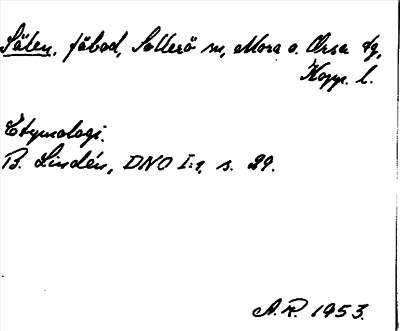 Sälen, fäbod, Sollerö sn, Mora o. Orsa tg,
Kopp. l.
Etymologi.
B. Lindén, DNO I:1, s. 29.
A.R. 1953.